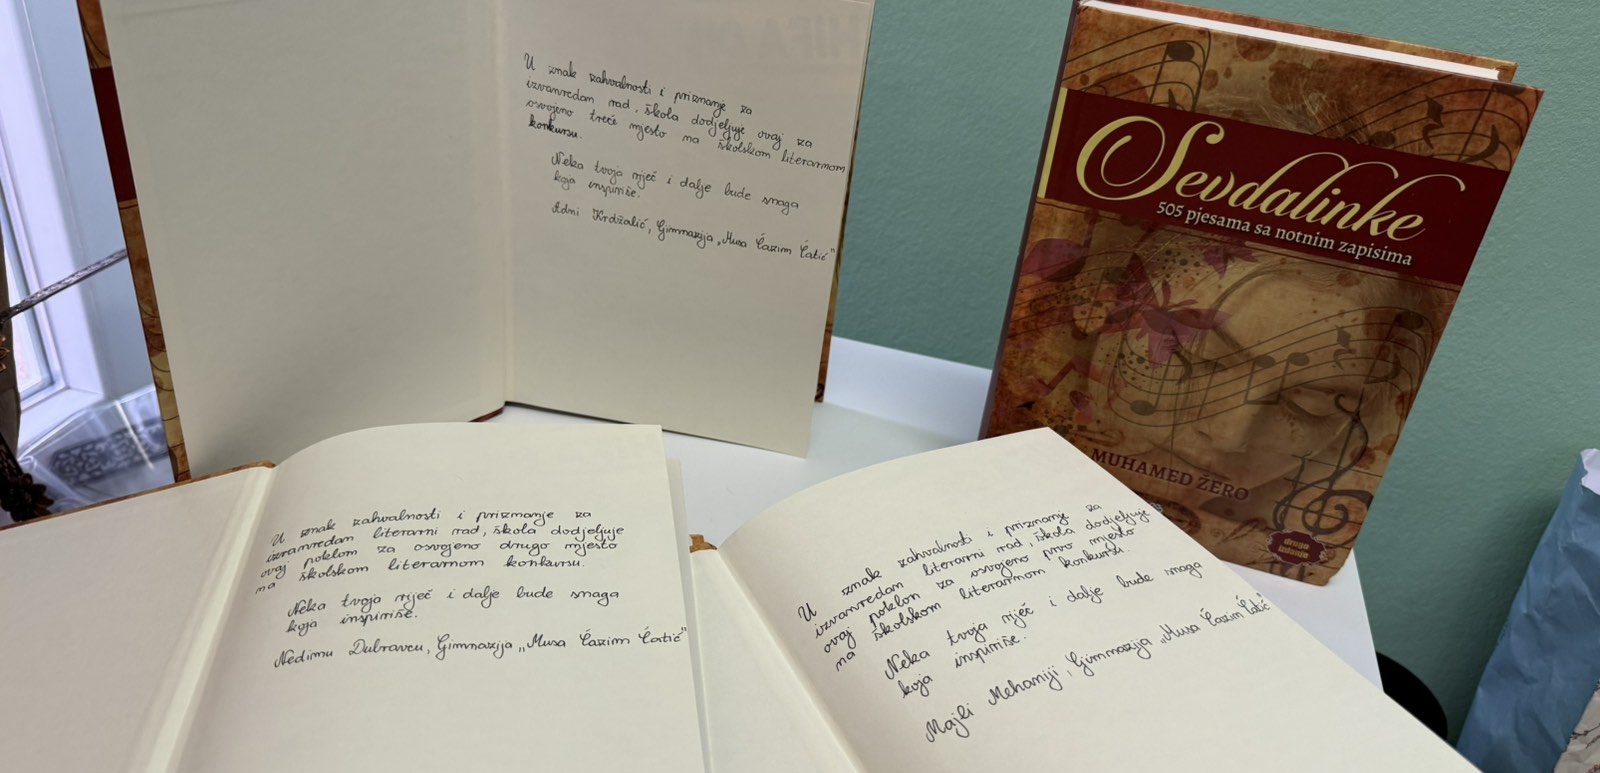 U znak zahvalnosti i priznanje za
izvanredan rad, škola dodjeljuje ovaj za
osvojeno treće mjesto na školskom literarnom
konkursu.
Neka tvoja riječ i dalje bude snaga
koja inspiriše.
Adni Krdžalić, Gimnazija „Musa Ćazim Ćatić"
Sevdalinke
505 pjesama sa notnim zapisima
MUHAMED ŽERO
drugo
izdanje
U znak zahvalnosti i priznanje za
izvanredan literarni rad, škola dodjeljuje
ovaj poklon za osvojeno drugo mjesto
na školskom literarnom konkursu.
Neka tvoja riječ i dalje bude snaga
koja inspiriše.
Nedimu Dubravcu, Gimnazija „Musa Ćazim Ćatić"
U znak zahvalnosti i priznanje za
izvanredan literarni rad, škola dodjeljuje
ovaj poklon za osvojeno prvo mjesto
na školskom literarnom konkursu.
Neka tvoja riječ i dalje bude snaga
koja inspiriše.
Majli Mehaniji, Gimnazija „Musa Ćazim Ćatić"